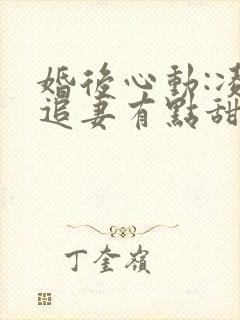 婚後心動:凌
追妻有點甜
丁奎嶺